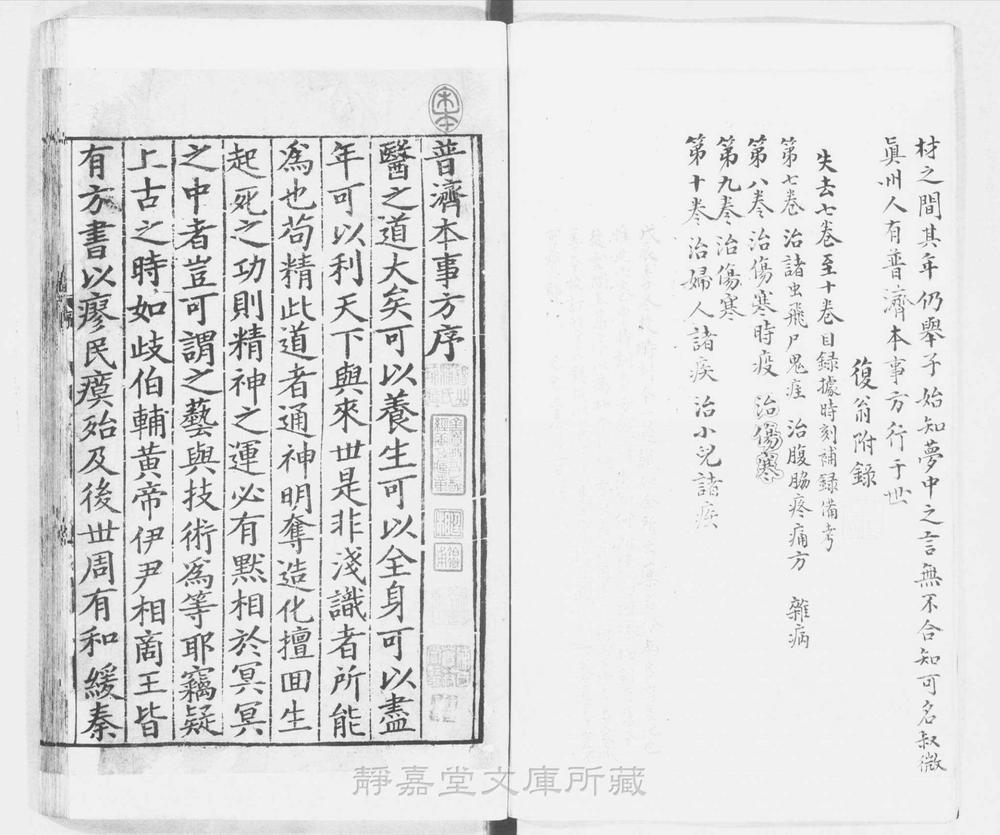 材之間其年仍舉子始知夢中之言無不合知可名叔微
眞州人有普濟本事方行于世
復翁附錄
失去七卷至十卷目録據時刻補録備考
第七卷 治諸虫飛尸鬼疰 治腹脇疼痛方 雜病
第八卷 治傷寒時疫 治傷寒
第九卷 治傷寒
第十卷 治婦人諸疾 治小兒諸疾
普濟本事方序
醫之道大矣可以養生可以全身可以盡
年可以利天下與來世是非淺識者所能
爲也苟精此道者通神明奪造化擅回生
起死之功則精神之運必有默相於冥冥
之中者豈可謂之藝與技術爲等耶竊疑
上古之時如歧伯輔黃帝伊尹相商王皆
有方書以瘳民瘼殆及後世周有和緩秦
靜嘉堂文庫所藏